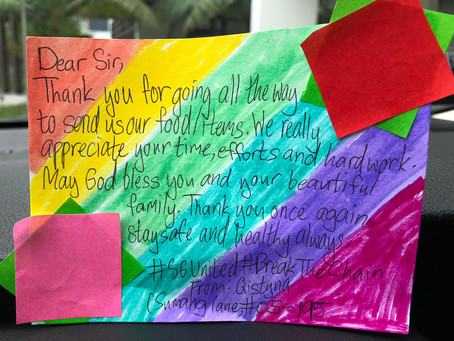 Dear Sir,
Thank you for going all the way
to send us our food/items. We really
appreciate your time, efforts and hard work.
May God bless you and your beautiful
family. Thank you once again.
stay safe and healthy always
#SGUnited #BreakTheChain
From: Qistyna
(Sumang lane #05-195